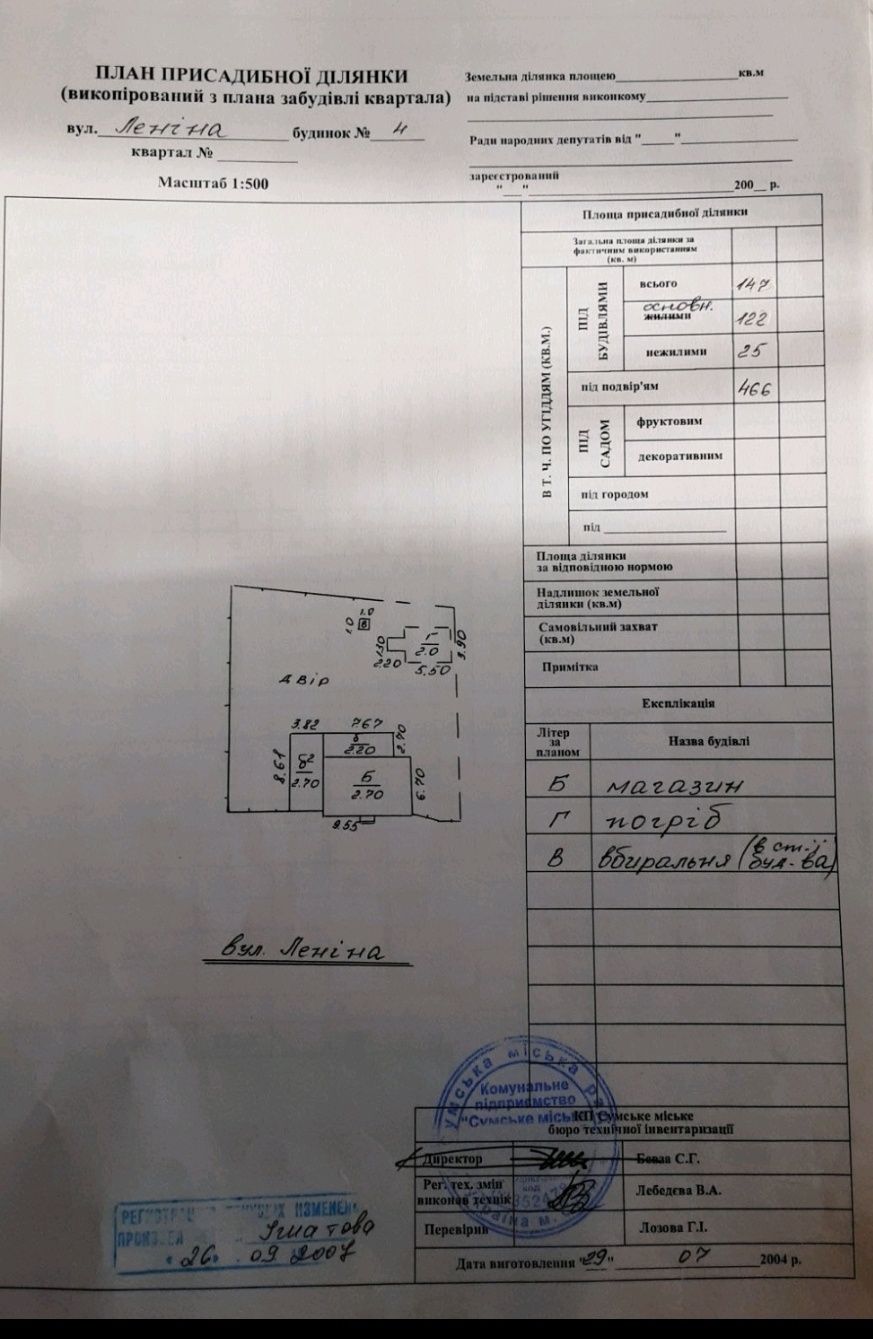 ПЛАН ПРИСАДИБНОЇ ДІЛЯНКИ
(викопірований з плана забудівлі квартала)
вул. Леніна будинок № 4
квартал №
Масштаб 1:500
Земельна ділянка площею кв.м
на підставі рішення виконкому
Ради народних депутатів від " "
зареєстрований
" " 200 р.
Площа присадибної ділянки
Загальна площа ділянки за
фактичним використанням
(кв. м)
В Т. Ч. ПО УГІДДЯМ (КВ.М.)
ПІД БУДІВЛЯМИ
всього 147
основн.
жилими 122
нежилими 25
під подвір'ям 466
ПІД САДОМ
фруктовим
декоративним
під городом
під
Площа ділянки
за відповідною нормою
Надлишок земельної
ділянки (кв.м)
Самовільний захват
(кв.м)
Примітка
Експлікація
Літер
за
планом
Назва будівлі
Б магазин
Г погріб
В вбиральня (в ст.
буд-ва)
1.0
1.0 В
1.30 Г
2.0
2.20 5.50 3.90
двір
3.82 7.67
б 2.70
2.20
8.61 б² Б 6.70
2.70 2.70
9.55
вул. Леніна
Сумська міська
Комунальне
підприємство
"Сумське міське
Україна м.
КП Сумське міське
бюро технічної інвентаризації
Директор С.Г.
Рег. тех. змін
виконав технік Лебедєва В.А.
Перевірив Лозова Г.І.
Дата виготовлення "29" 07 2004 р.
ИЗМЕНЕН
26 . 09 2007